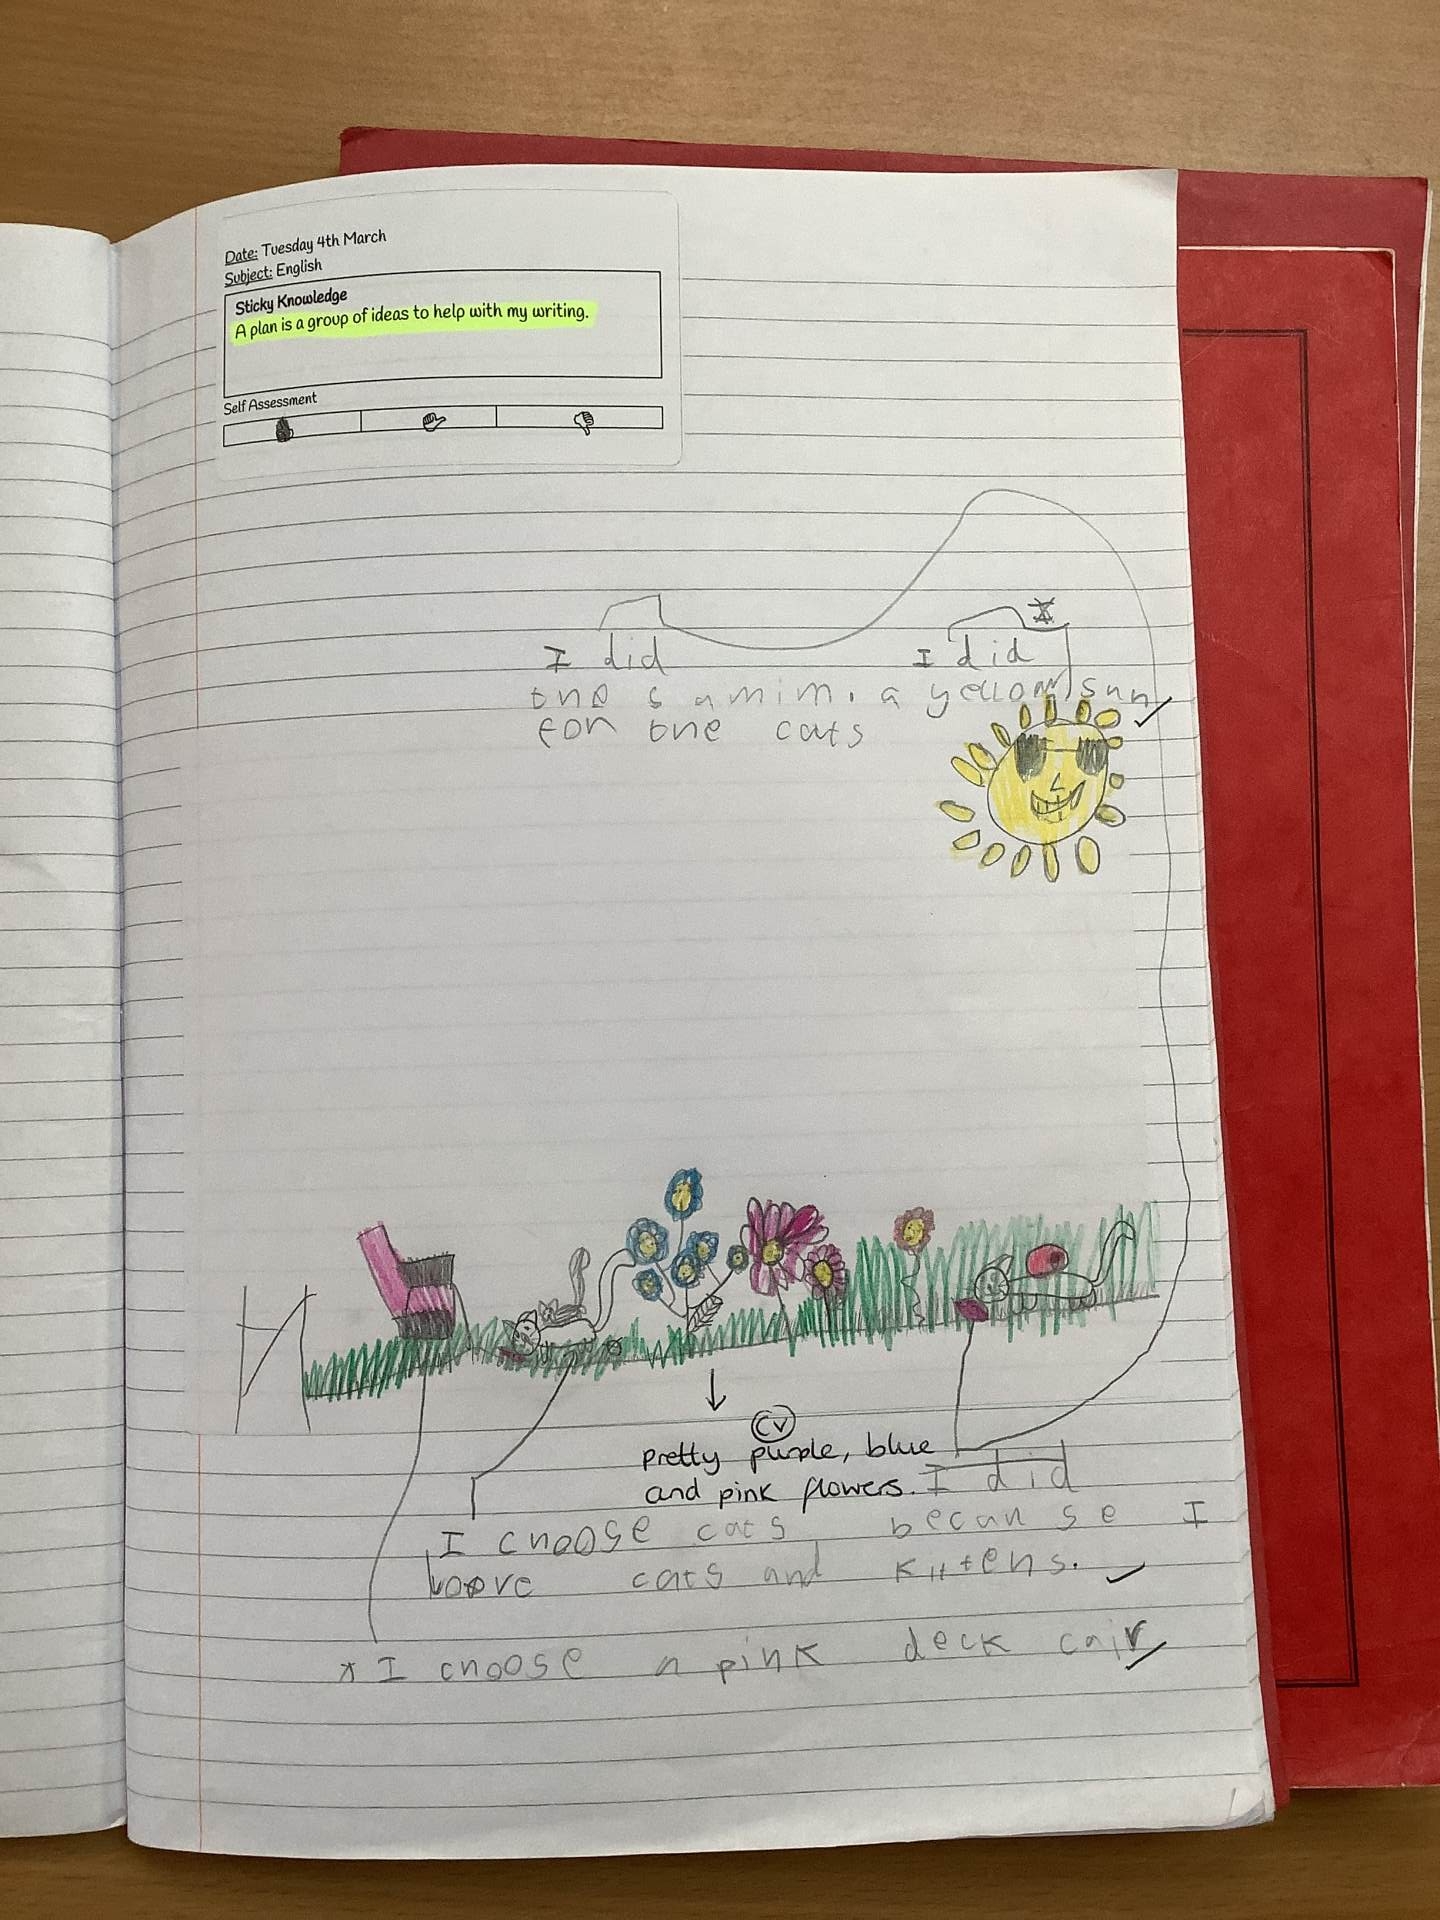 Date: Tuesday 4th March
Subject: English
Sticky Knowledge
A plan is a group of ideas to help with my writing.
Self Assessment
I did
I did
the
a yellow sun
for the cats
CV
pretty purple, blue
and pink flowers.
I did
I choose cats because I
love cats and kittens.
I choose a pink deck cair